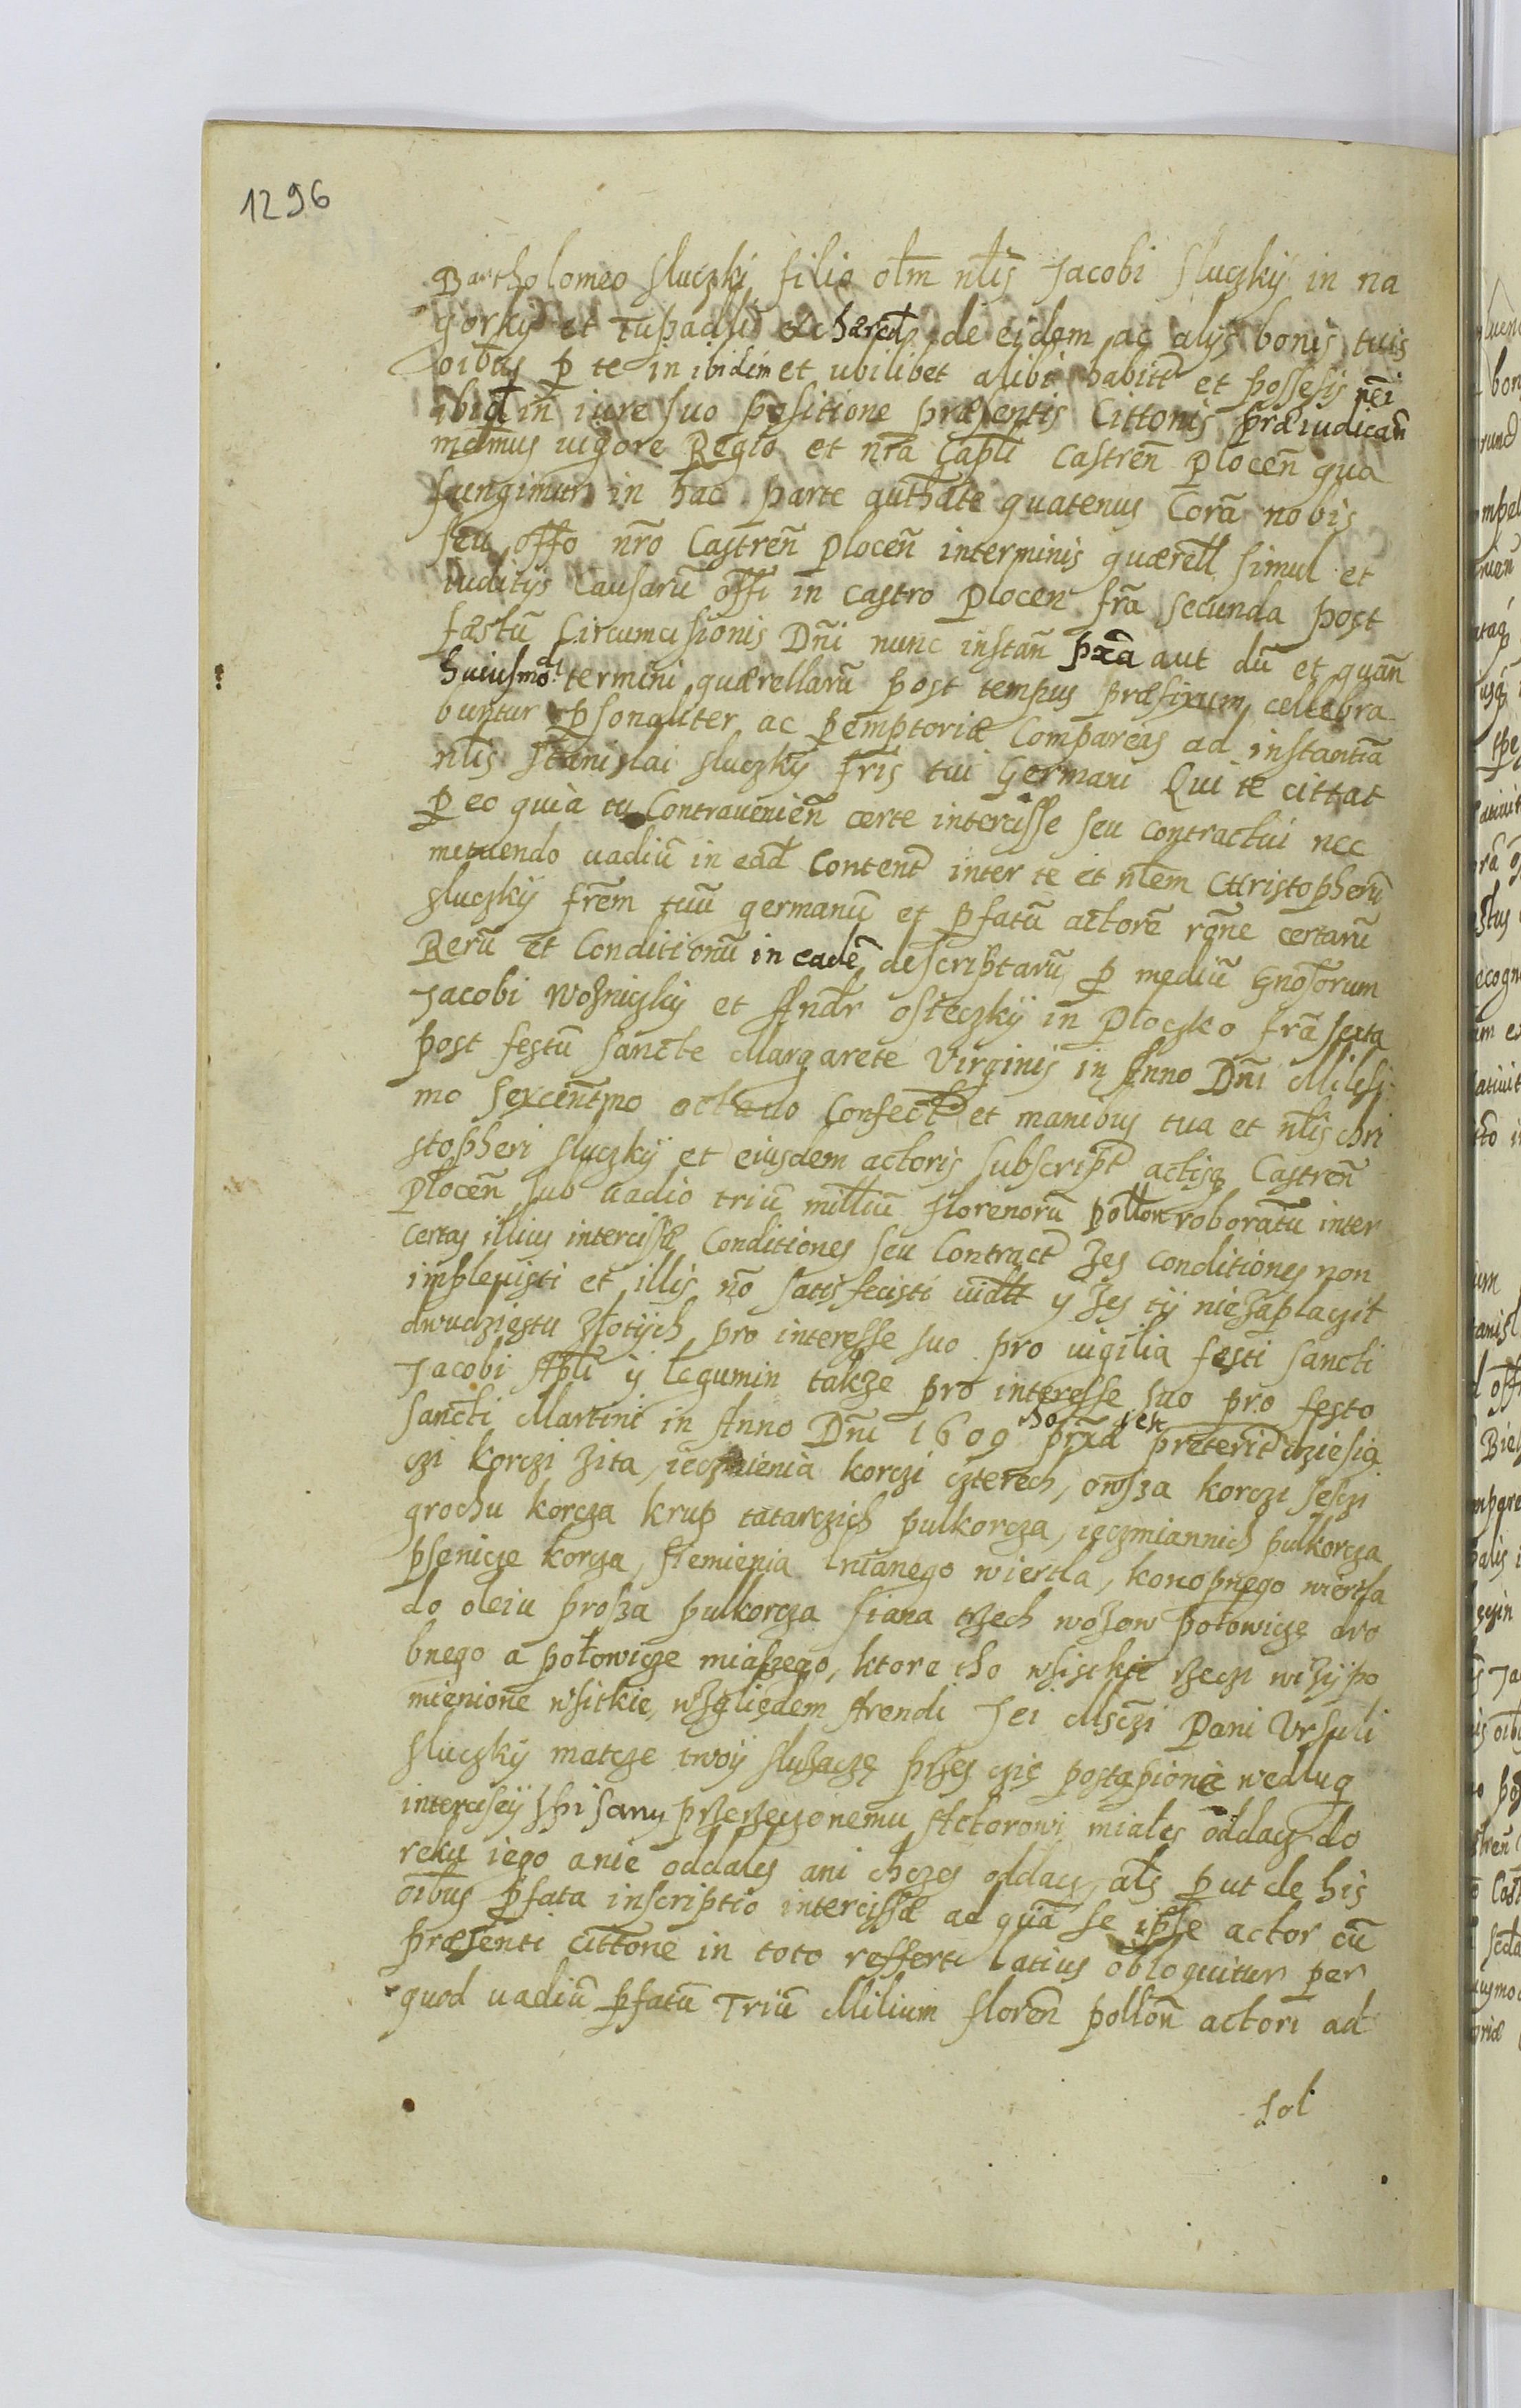 1296
Bartholomeo Sluczkÿ filio olm nlis Jacobi Sluczkÿ in na
gorky et Tupadlÿ &c hæred de eisdem ac alys bonis tuis
oibus p te in ibidem et ubilibet alibi habitt et possesis nei
ibid in iure suo positione præsentis Cittonis præiudican
mdmus uigore Regio et nra Capli Castren Plocen qua
fungimur in hac parte authate quatenus Cora nobis
seu offo nro Castren Plocen in terminis quærell simul et
Iuditys causaru offi in castro Plocen fra secunda post
fæstu Circumcisionis Dni nunc instan pxa aut du et quan
huiusmodi termini quærellaru post tempus præfixum cellebra
buntur psonaliter ac pemptoriæ Compareas ad instantia
nlis Stanislai Sluczkÿ fris tui Germani Qui te cittat
p eo quia tu Contrauenien certe intercisse seu contractui nec
metuendo uadiu in ead Content inter te et nlem Christopheru
Sluczkÿ frem tuu germanu et pfatu actore rone certaru
Reru et Conditionu in eade descriptaru p mediu Gnosorum
Jacobi Wozniczkÿ et Andr Osieczkÿ in Ploczko fra sexta
post festu sancte Margarete Virginis in Anno Dni Milesi
mo sexcentmo octauo Confect et manibus tua et nlis Chri
stopheri Sluczkÿ et eiusdem actoris subscript actisq Castren
Plocen sub uadio triu milliu florenoru pollon roboratu inter
certas illius intercissæ Conditiones seu Contract Zes conditiones non
implevisti et illis no satisfecisti uidtt y Zes tÿ niezaplaczit
dwudziestu złotÿch pro interesse suo pro uigilia festi sancti
Jacobi Apli ÿ legumin takze pro interesse suo pro festo
sancti Martini in Anno Dni 1609 pxa preterit dziesią
czi korczi zita, ieczmienia korczi czterech, owsza korczi sesczi
grochu korcza krup tatarczich pulkorcza, ieczmiannich pulkorcza
psenicze korcza, siemienia lnianego wiertla, konopnego wiertla
do oleiu prosza pulkorcza siana trzech wozow połowicze dro
bnego a połowicze miaszego, ktore tho wsischie rzeczi wizÿ po
mienione wsitkie, względem Arendi Jei Msczi Pani Ursuli
Sluczkÿ matcze twoÿ sluzacze przes czie postąpione wedlug
intercisÿ spisanÿ przerzeczonemu Actorowi miales oddacz do
reku iego a nie oddales ani chczes oddacz, als put de his
oibus pfata inscriptio intercissæ ad qua se ipse actor cu
præsenti cittone in toto reffert latius obloquitur per
quod uadiu pfatu Triu Milium floren pollon actori ad
sol